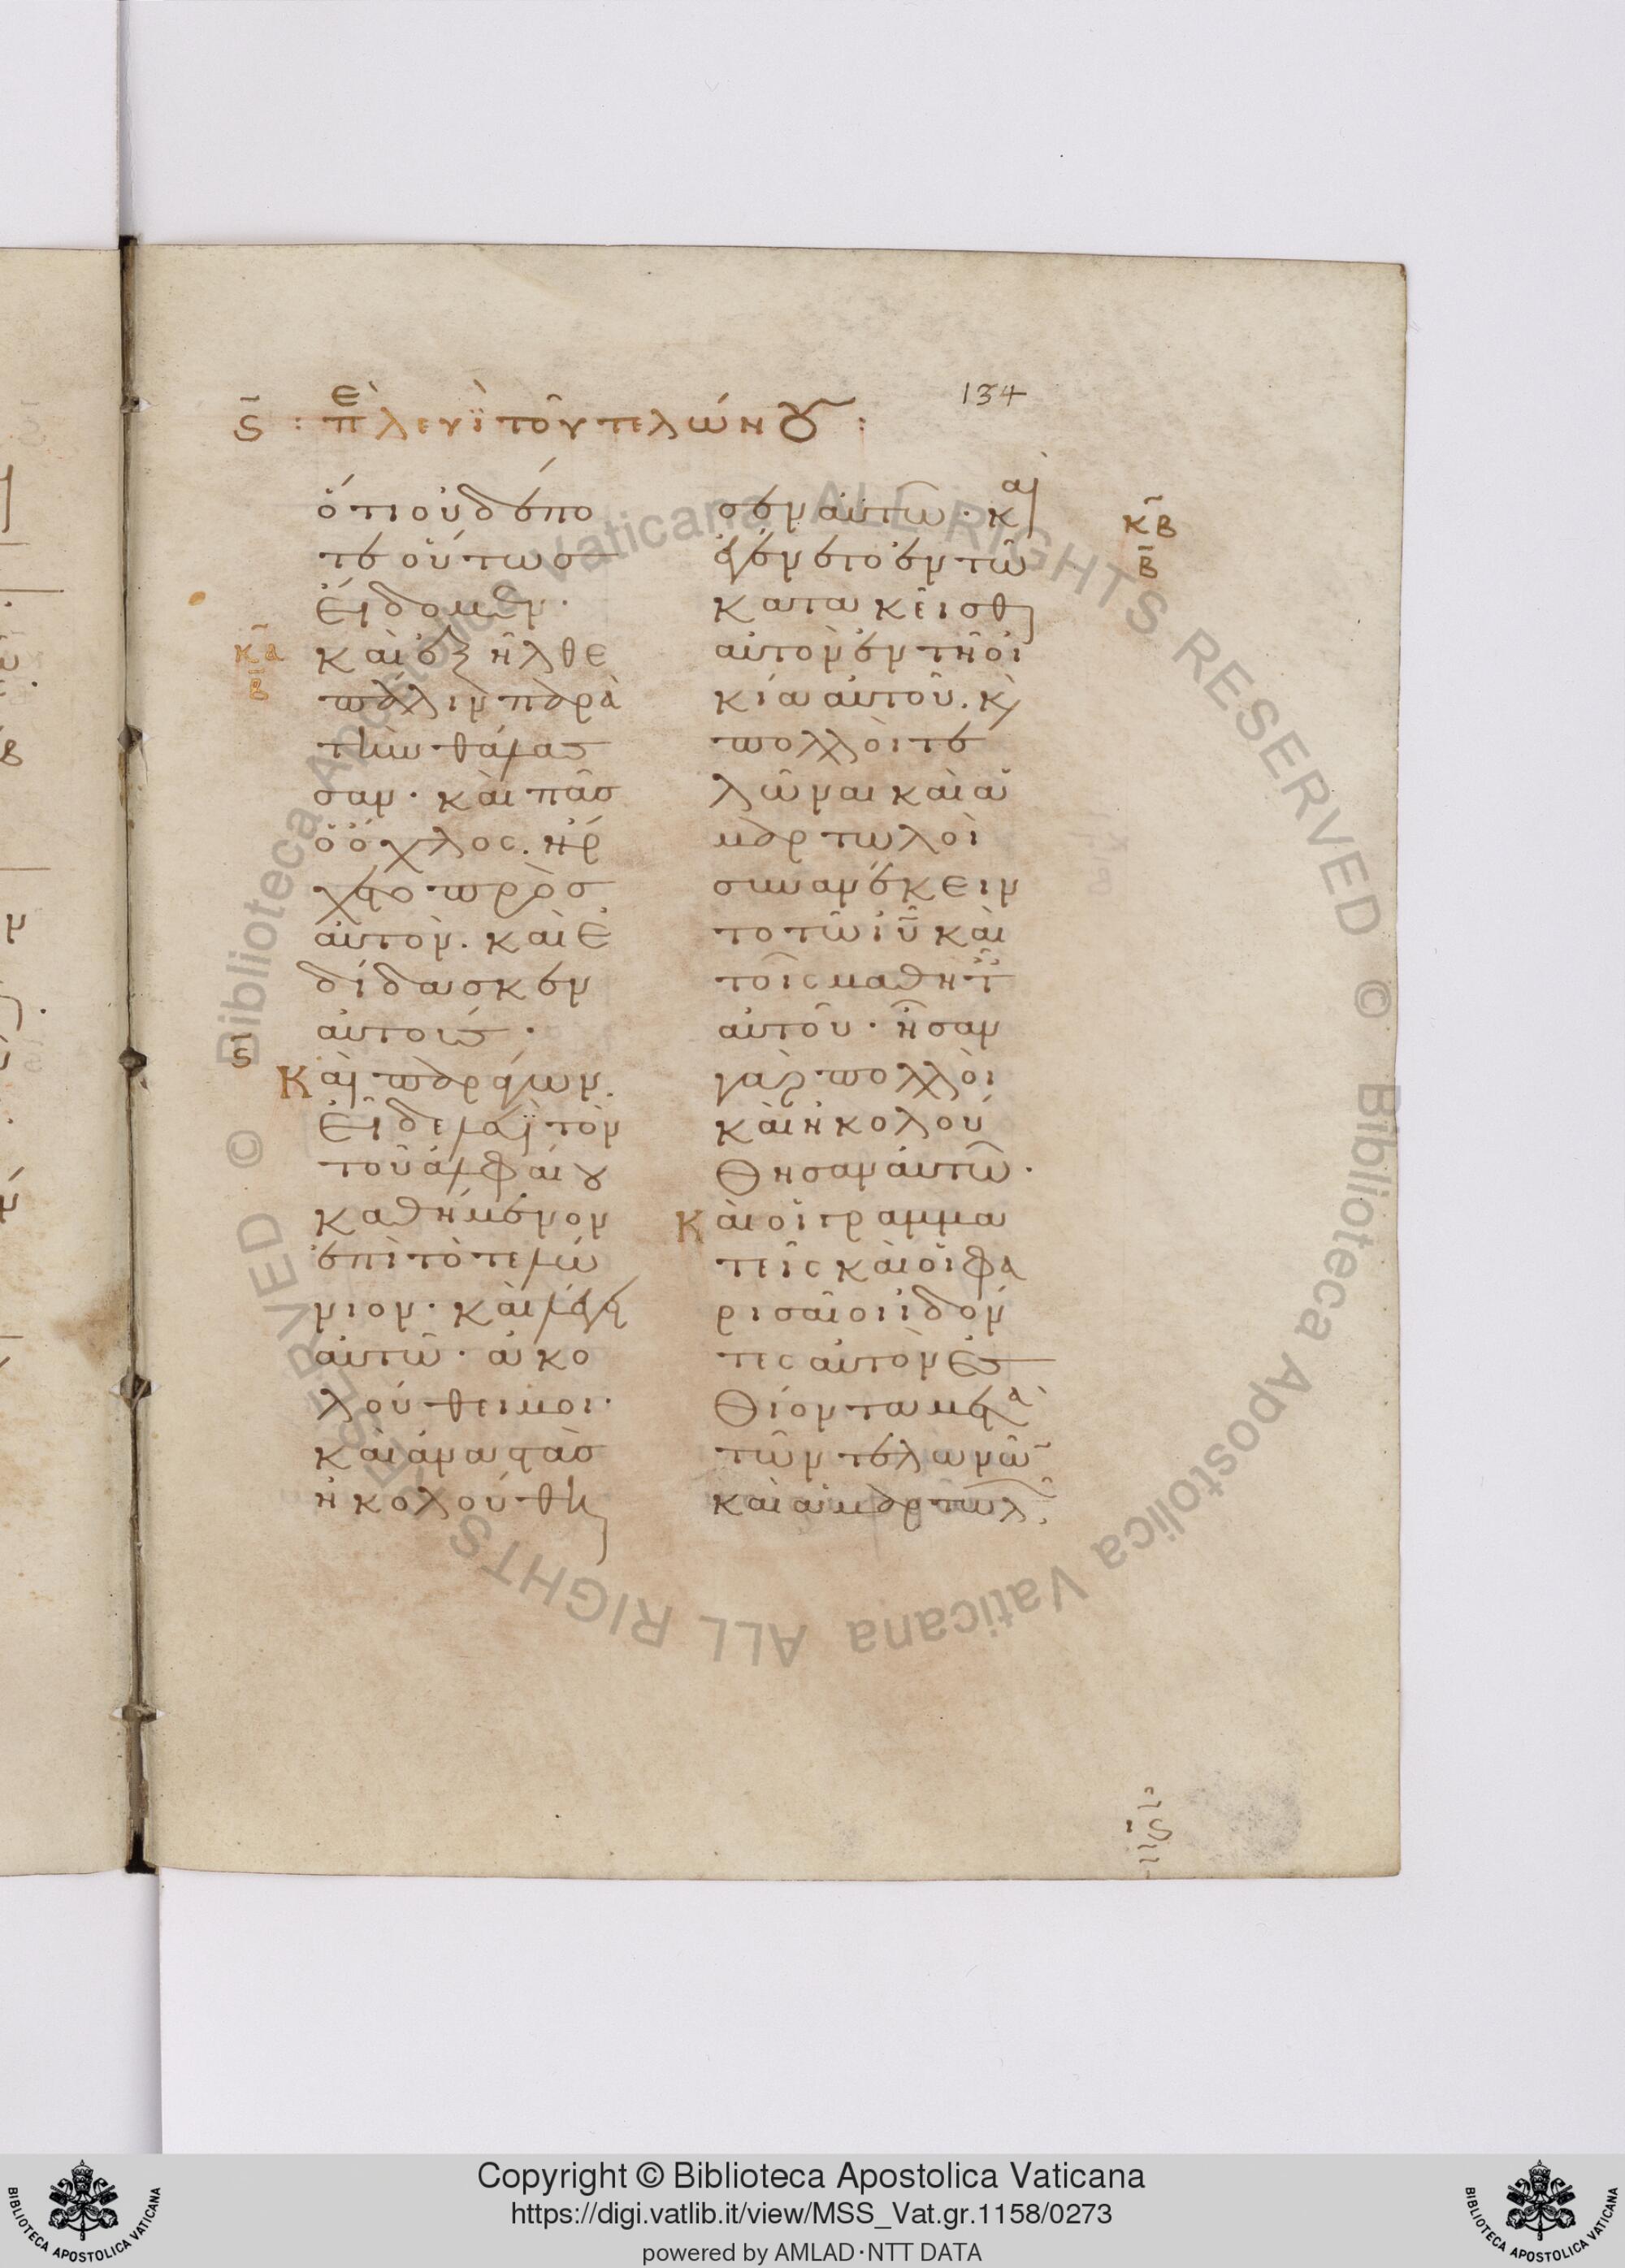 134
ς̄ : πὲ λευῒ τοῦ τελώνου :
ὅτι οὐδέπο
τε οὕτως
εἴδομεν.
κ̄α
β̄
καὶ ἐξῆλθε
πάλιν παρὰ
τὴν θάλασ
σαν. καὶ πᾶσ
ὁ ὄχλος. ἤρ
χετο πρὸσ
αὐτόν. καὶ ἐ
δίδασκεν
αὐτούς.
ς
Καὶ παράγων.
εἶδε λευῒ τὸν
τοῦ ἀλφαίου
καθήμενον
ἐπὶ τὸ τελώ
νιον. καὶ λέγει
αὐτῶ. ἀκο
λούθει μοι.
καὶ ἀναστὰσ
ἠκολούθη
σεν αὐτῶ. καὶ
κ̄β
β̄
ἐγένετο ἐν τῶ
κατακεῖσθαι
αὐτὸν ἐν τῆ οἰ
κία αὐτοῦ. κ(αὶ)
πολλοὶ τε
λῶναι καὶ ἁ
μαρτωλοὶ
συνανέκειν
το τῶ ἰ̄ῡ καὶ
τοῖς μαθητ
αὐτοῦ. ἦσαν
γὰρ πολλοὶ
καὶ ἠκολού
θησαν αὐτῶ.
Καὶ οἱ γραμμα
τεῖς καὶ οἱ φα
ρισαῖοι ἰδόν
τες αὐτὸν ἐσ
θίοντα μετὰ
τῶν τελωνῶ
καὶ ἁμαρτωλ
Copyright © Biblioteca Apostolica Vaticana
https://digi.vatlib.it/view/MSS_Vat.gr.1158/0273
powered by AMLAD·NTT DATA
BIBLIOTECA APOSTOLICA VATICANA
BIBLIOTECA APOSTOLICA VATICANA
© Biblioteca Apostolica Vaticana ALL RIGHTS RESERVED © Biblioteca Apostolica Vaticana ALL RIGHTS RESERVED